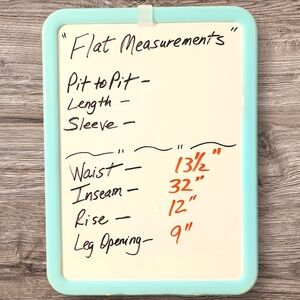 "Flat Measurements"
Pit to Pit –
Length –
Sleeve –
Waist – 13½"
Inseam – 32"
Rise – 12"
Leg Opening – 9"